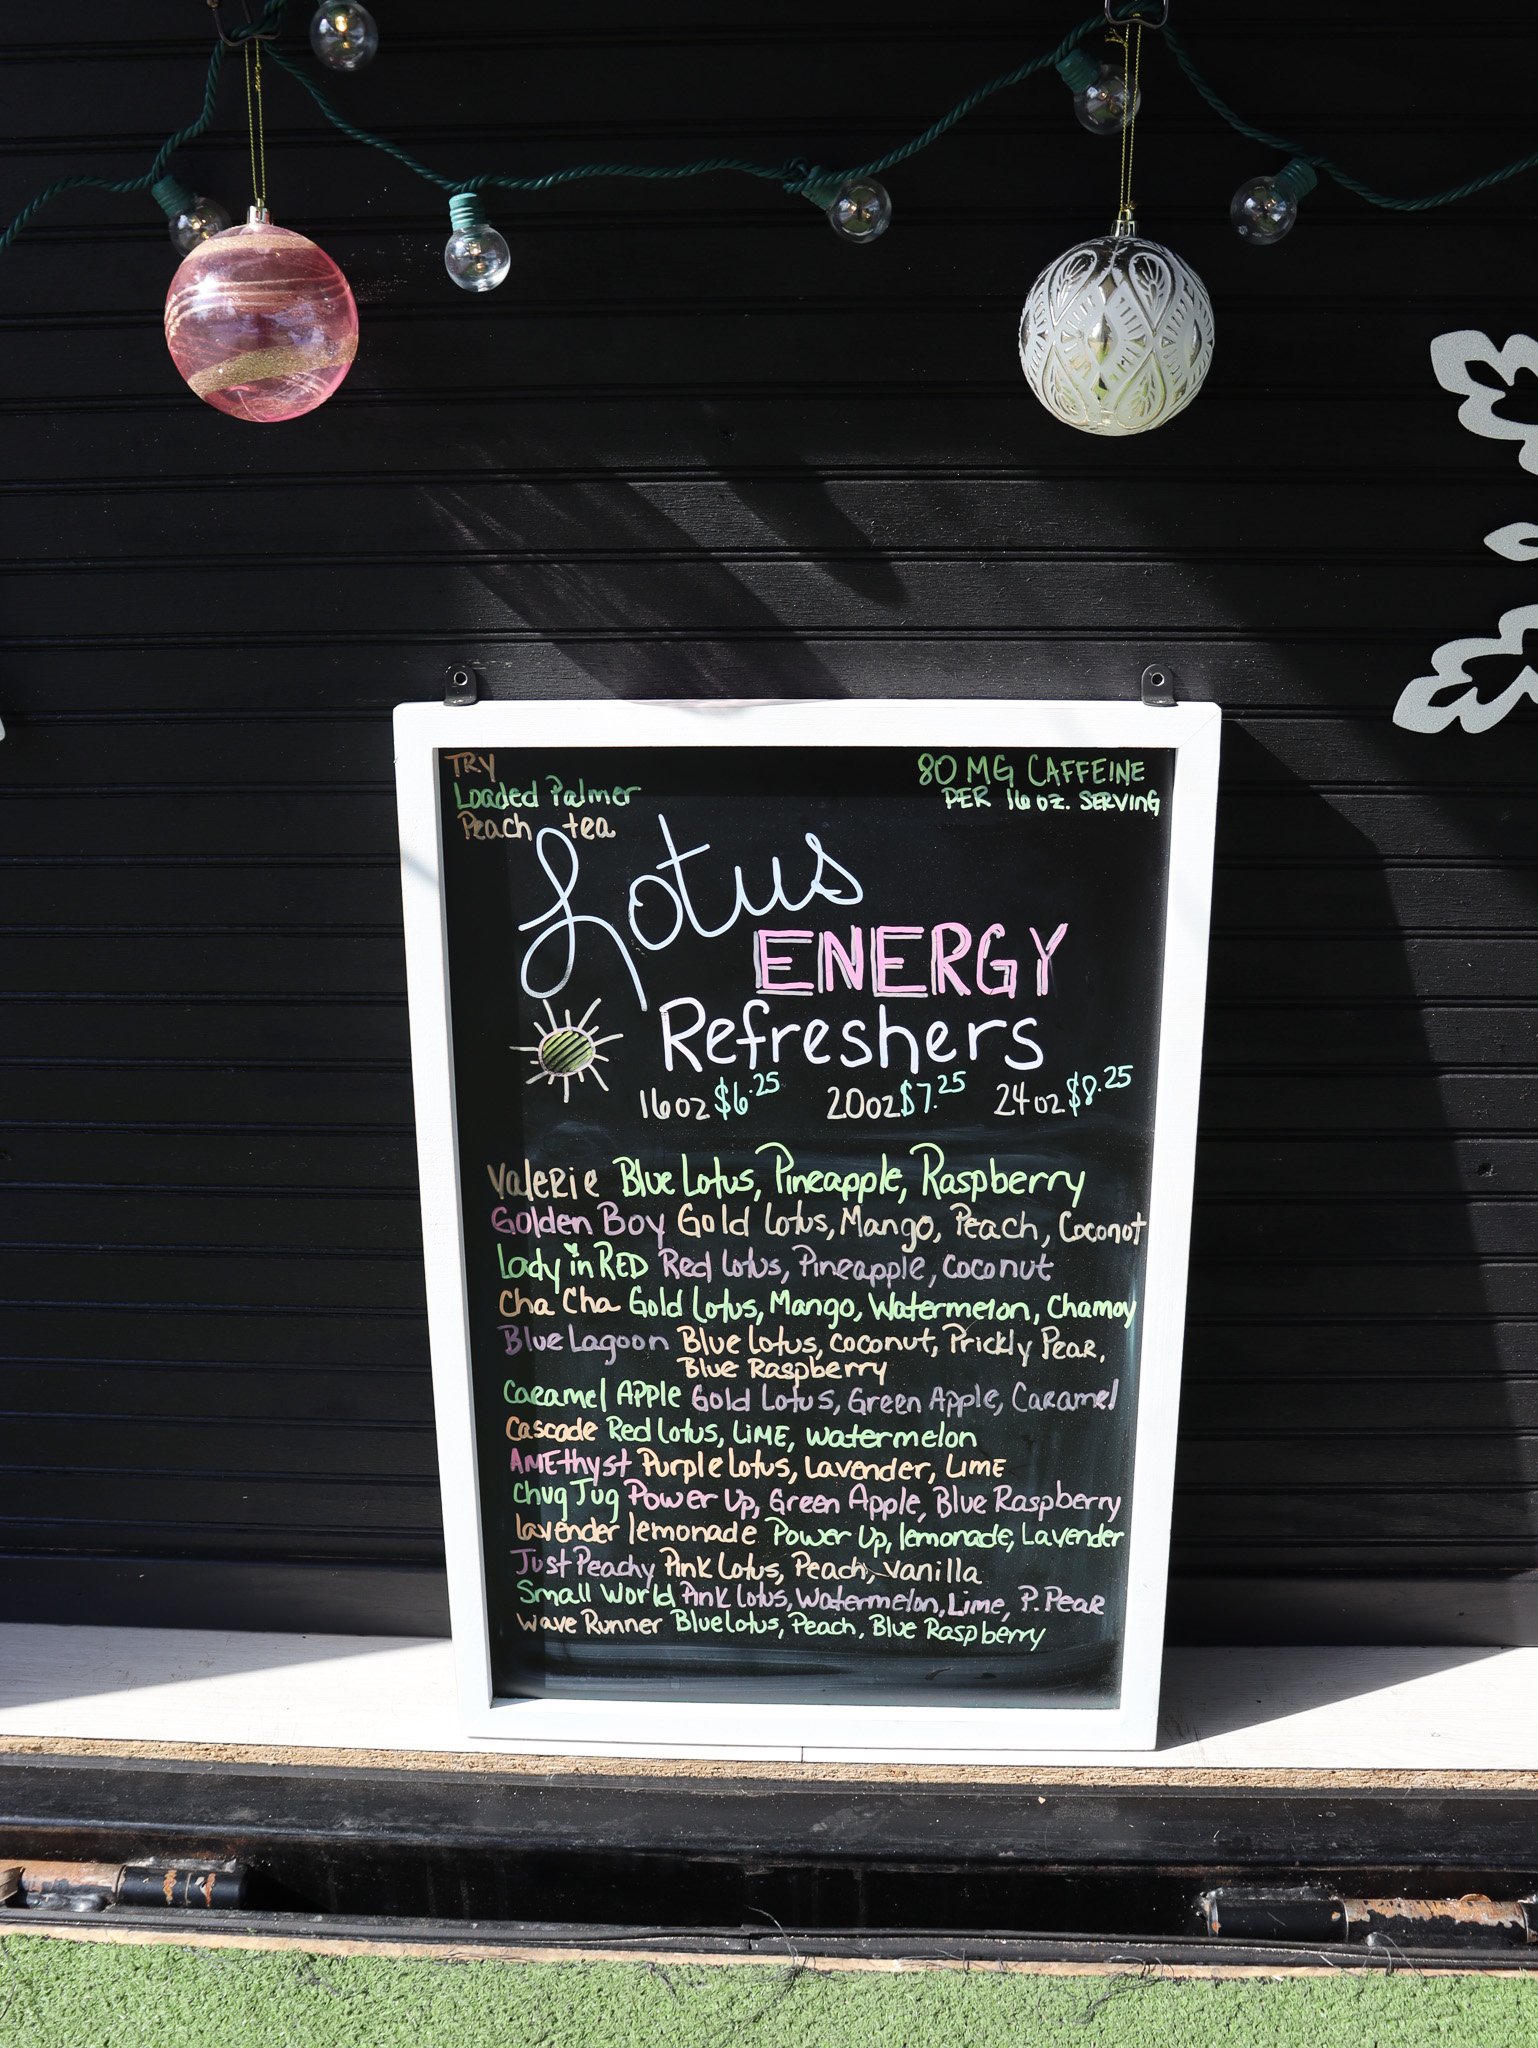 TRY
Loaded Palmer
Peach tea
80 MG CAFFEINE
PER 16 oz. SERVING
Lotus
ENERGY
Refreshers
16oz $6.25 20oz $7.25 24oz $8.25
Valerie Blue Lotus, Pineapple, Raspberry
Golden Boy Gold Lotus, Mango, Peach, Coconut
Lady in RED Red Lotus, Pineapple, Coconut
Cha Cha Gold Lotus, Mango, Watermelon, Chamoy
Blue Lagoon Blue Lotus, Coconut, Prickly Pear,
Blue Raspberry
Caramel Apple Gold Lotus, Green Apple, Caramel
Cascade Red Lotus, LIME, Watermelon
AMEthyst Purple Lotus, Lavender, LIME
Chug Jug Power Up, Green Apple, Blue Raspberry
lavender lemonade Power Up, lemonade, Lavender
Just Peachy Pink Lotus, Peach, Vanilla
Small World Pink Lotus, Watermelon, Lime, P. Pear
Wave Runner Blue Lotus, Peach, Blue Raspberry